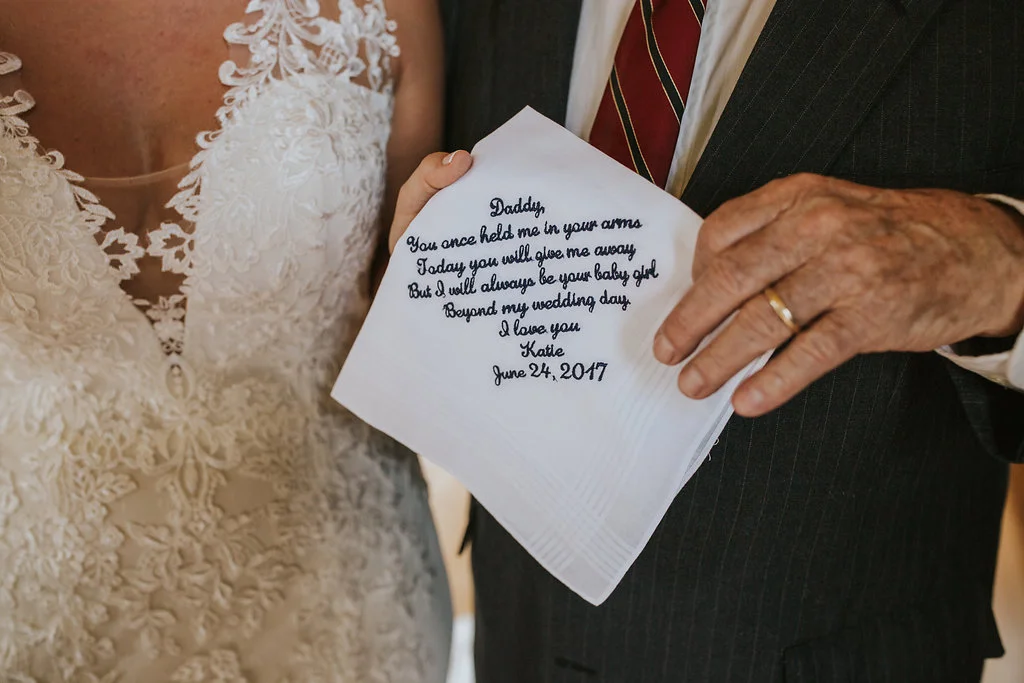 Daddy,
You once held me in your arms
Today you will give me away
But I will always be your baby girl
Beyond my wedding day.
I love you
Katie
June 24, 2017